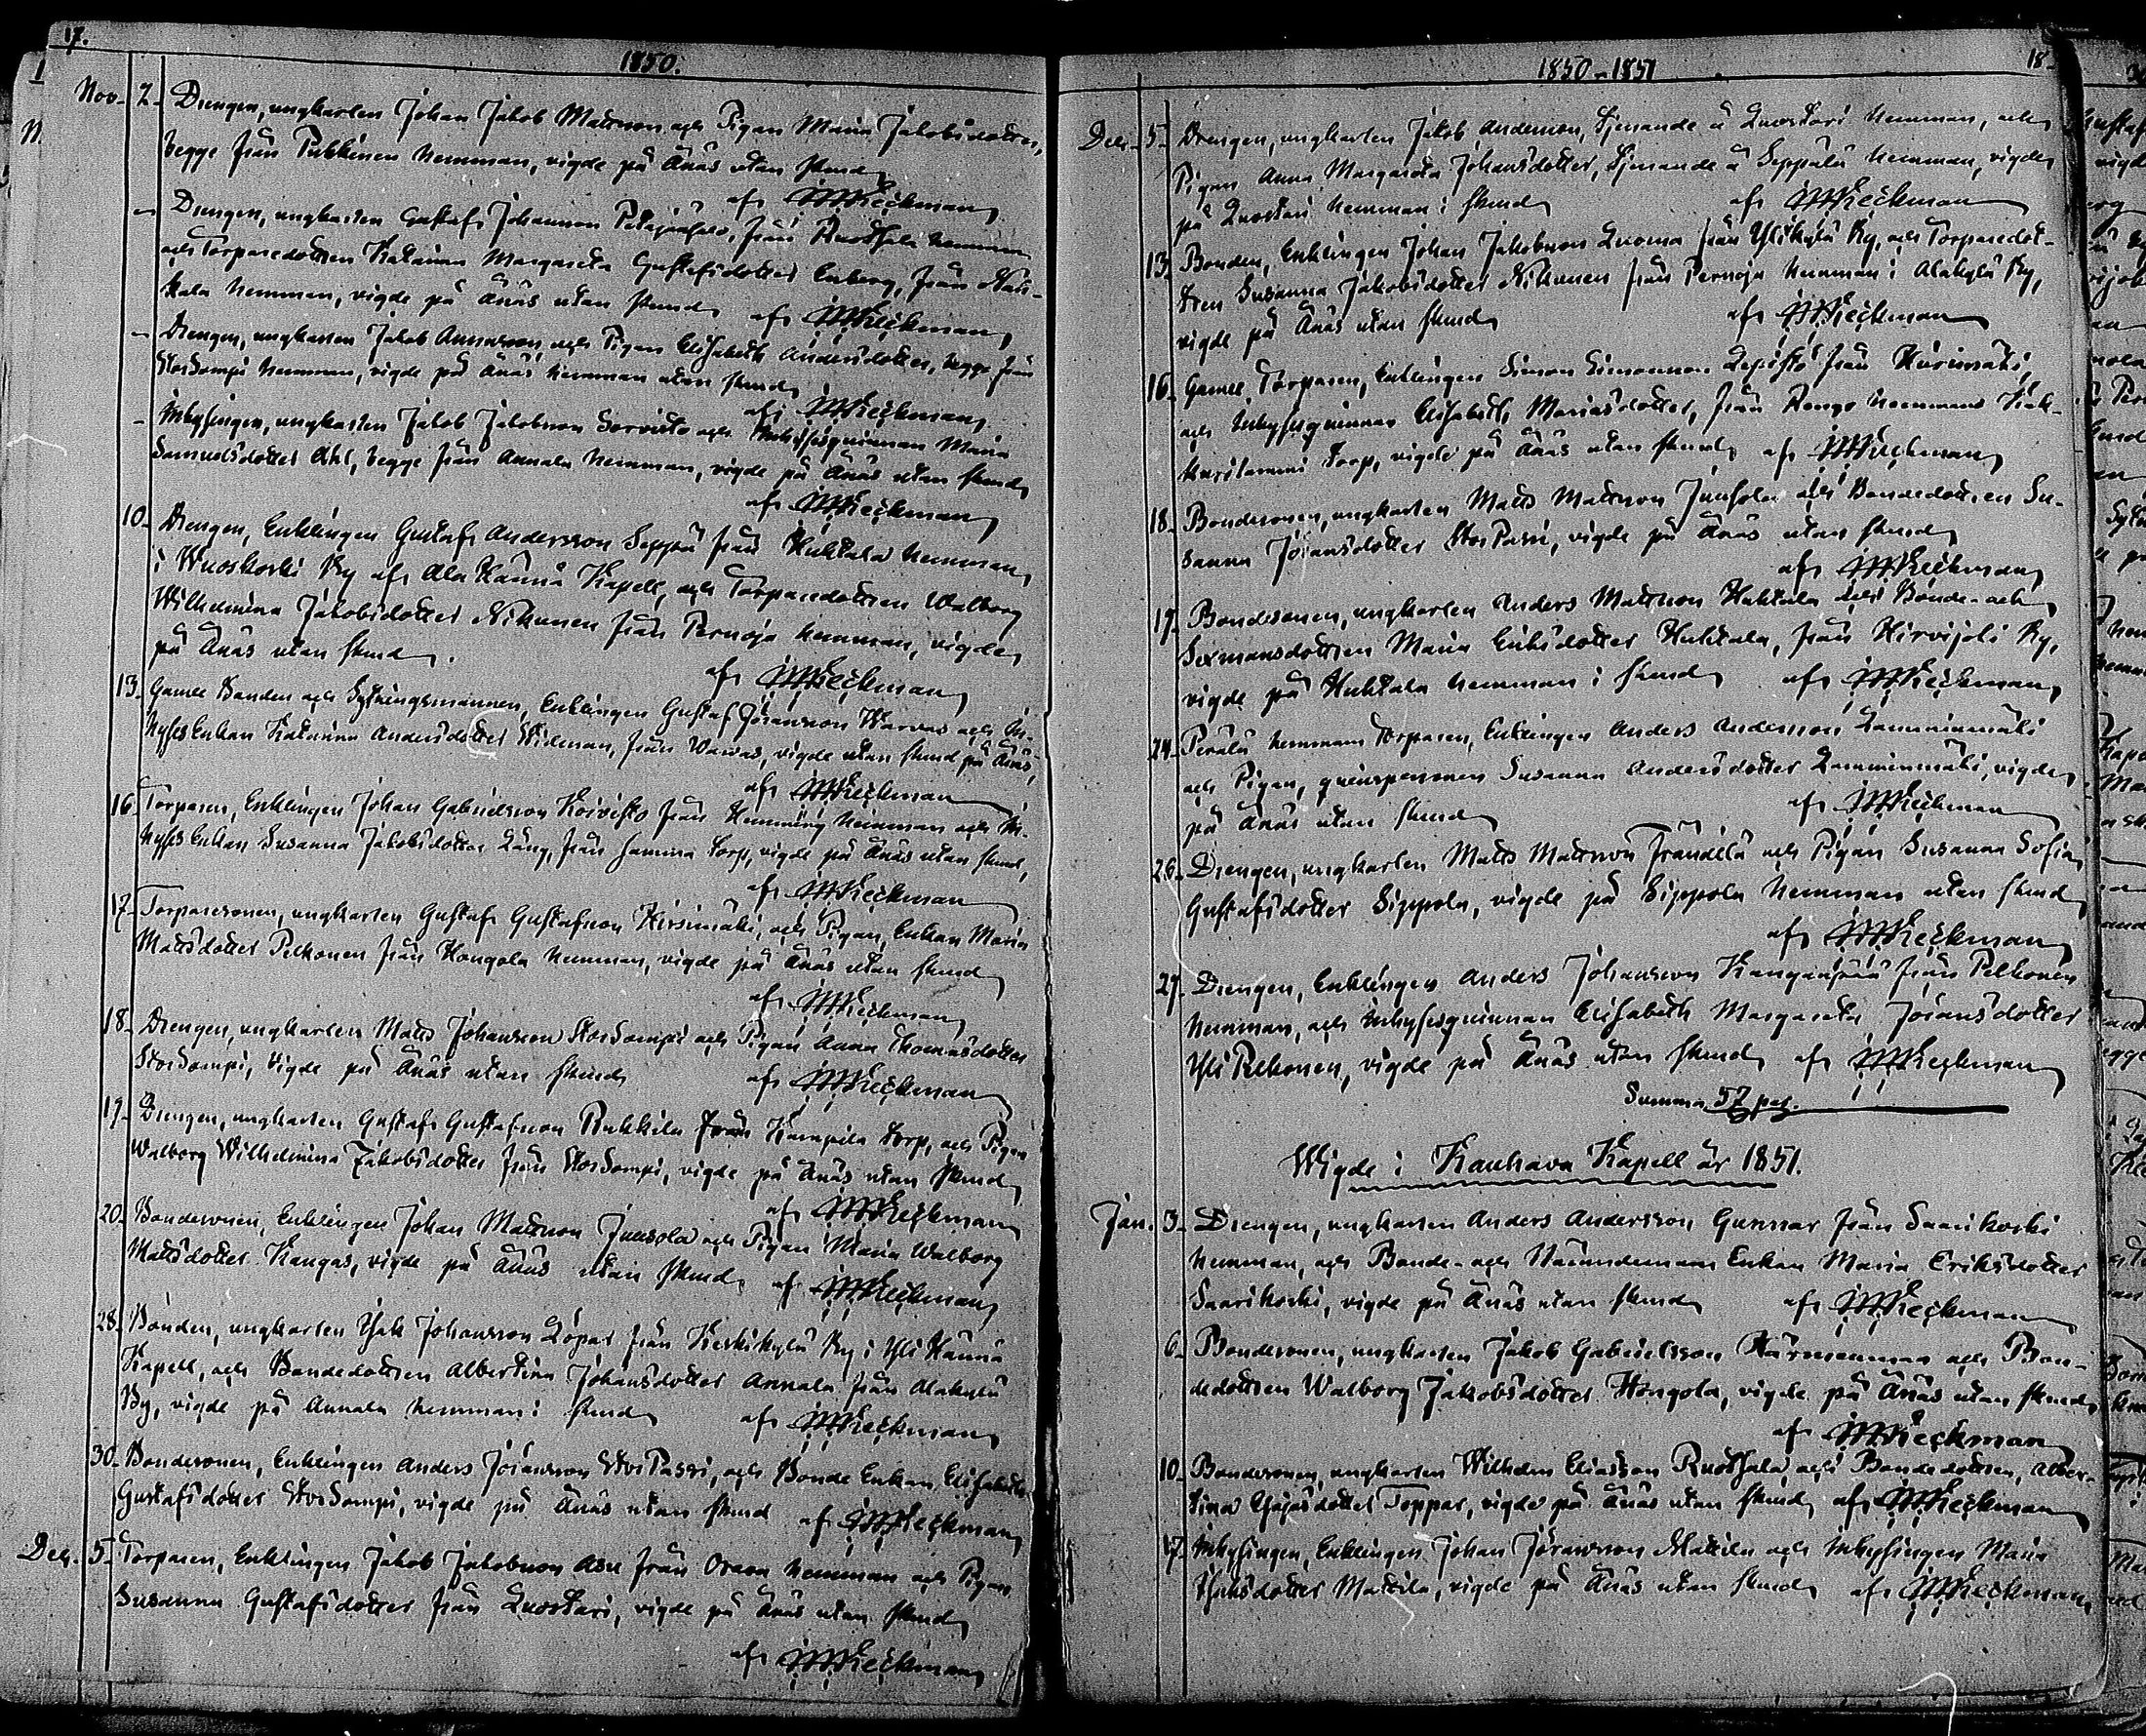 17.
1850.
Nov. 2. Drengen, ungkarlen Johan Jakob Mattsson och Pigan Maria Jakobsdotter,
begge från Pukkinen hemman, vigde på Änäs utan skrud
af JMKeckman
Drengen, ungkarlen Gustaf Johansson Petäjäsalo, från Ruotsala hemman
och Torparedottren Katarina Margareta Gustafsdotter Enberg, från
kala hemman, vigde på Änäs utan skrud af JMKeckman
Drengen, ungkarlen Jakob Annasson och Pigan Elisabeth Andersdotter, begge från
StorSompi hemman, vigde på Änäs hemman utan skrud
af JMKeckman
Inhysingen, ungkarlen Jakob Jakobsson Sorvisto och Inhysesqvinnan Maria
Samuelsdotter Ahl, begge från Annala hemman, vigde på Änäs utan skrud
af JMKeckman
10. Drengen, Enklingen Gustaf Andersson Seppä från Huhtala hemman
i Wuoskoski By af Ala Härmä Kapell, och Torparedottren Walborg
Wilhelmina Jakobsdotter Nikunen från Pernaja hemman, vigde
på Änäs utan skrud.
af JMKeckman
13. Gamle Bonden och Sytningsmannen, Enklingen Gustaf Jöransson Warvas och In-
hyses Enkan Katarina Andersdotter Widman, från Warvas, vigde utan skrud på Änäs,
af JMKeckman
16. Torparen, Enklingen Johan Gabrielsson Koivisto från Hemming hemman och In-
hyses Enkan Susanna Jakobsdotter Lång, från Samma torp, vigde på Änäs utan skrud,
af JMKeckman
17. Torparesonen, ungkarlen Gustaf Gustafsson Hirsimäki, och Pigan, Enkan Maria
Mattsdotter Pelkonen från Hongola hemman, vigde på Änäs utan skrud
af JMKeckman
18. Drengen, ungkarlen Matts Johansson StorSompi och Pigan Anna Thomasdotter
StorSompi, vigde på Änäs utan skrud af JMKeckman
19. Drengen, ungkarlen Gustaf Gustafsson Pukkila från Kampila torp, och Pigan
Walborg Wilhelmina Jakobsdotter från StorSompi, vigde på Änäs utan skrud
af JMKeckman
20. Bondesonen, Enklingen Johan Mattsson Juusola och Pigan Maria Walborg
Mattsdotter Kangas, vigde på Änäs utan skrud af JMKeckman
28. Bonden, ungkarlen Isak Johansson Löpar från Keskikylä By i Yli Härmä
Kapell, och Bondedottren Albertina Johansdotter Annala från Alakylä
By, vigde på Annala hemman i skrud af JMKeckman
30. Bondesonen, Enklingen Anders Jöransson StorPassi, och Bonde Enkan Elisabeth
Gustafsdotter StorSompi, vigde på Änäs utan skrud af JMKeckman
Dec. 5. Torparen, Enklingen Jakob Jakobsson Asu från Orava hemman och Pigan
Susanna Gustafsdotter från Luostari, vigde på Änäs utan skrud
af JMKeckman
1850-1851
18.
Dec. 5. Drengen, ungkarlen Jakob Andersson, tjenande å Luostari hemman, och
Pigan Anna Margareta Johansdotter, tjenande å Seppälä hemman, vigde
på Luostari hemman i skrud af JMKeckman
13. Bonden, Enklingen Johan Jakobsson Luoma från Ylikylä By, och Torparedot-
tren Susanna Jakobsdotter Nikunen från Pernaja hemman i Alakylä By,
vigde på Änäs utan skrud af JMKeckman
16. Gamle Torparen, Enklingen Simon Simonsson Lepistö från Hirvimäki,
och Inhysesqvinnan Elisabeth Mariasdotter, från Rengo hemmans
torp, vigde på Änäs utan skrud af JMKeckman
18. Bondesonen, ungkarlen Matts Mattsson Juusola och Bondedottren Su-
sanna Jöransdotter StorPassi, vigde på Änäs utan skrud
af JMKeckman
19. Bondesonen, ungkarlen Anders Mattsson Huhtala och Bonde- och
Sexmansdottren Maria Eriksdotter Huhtala, från Hirvijoki By,
vigde på Huhtala hemman i skrud af JMKeckman
24. Perälä hemmans Torparen, Enklingen Anders Andersson Lamminmäki
och Pigan, qvinspersonen Susanna Andersdotter Lamminmäki, vigde
på Änäs utan skrud af JMKeckman
26. Drengen, ungkarlen Matts Mattsson Frändilä och Pigan Susanna Sofia
Gustafsdotter Sippola, vigde på Sippola hemman utan skrud
af JMKeckman
27. Drengen, Enklingen Anders Johansson Kangas från Pelkonen
hemman, och Inhysesqvinnan Elisabeth Margareta Jöransdotter
Yli Pelkonen, vigde på Änäs utan skrud af JMKeckman
Summa 57 par.
Wigde i Kauhava Kapell år 1851.
Jan. 3. Drengen, ungkarlen Anders Andersson Gunnar från Saarikoski
hemman, och Bonde- och Nämndemans Enkan Maria Eriksdotter
Saarikoski, vigde på Änäs utan skrud af JMKeckman
6. Bondesonen, ungkarlen Jakob Gabrielsson Härmänmaa och Bon-
dedottren Walborg Jakobsdotter Hongola, vigde på Änäs utan skrud,
af JMKeckman
10. Bondesonen, ungkarlen Wilhelm Eliasson Ruotsala, och Bondedottren, Alber-
tina Esajasdotter Toppar, vigde på Änäs utan skrud, af JMKeckman
17. Inhysingen, Enklingen Johan Jöransson Mattila och Inhysingen Maria
Isaksdotter Mattila, vigde på Änäs utan skrud af JMKeckman